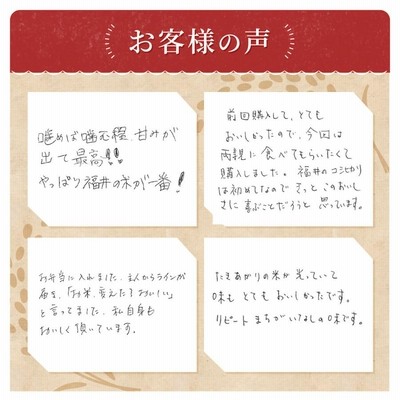 お客様の声
噛めば噛む程、甘みが
出て最高!!
やっぱり福井の米が一番!
前回購入して、とても
おいしかったので、今回は
両親に食べてもらいたくて
購入しました。福井のコシヒカリ
は初めてなので きっと このおいし
さに喜ぶことだろうと 思っています。
お弁当に入れました。主人からラインが
届き、「お米、変えた？おいしい」
と言ってました。私自身も
おいしく頂いています。
たきあがりの米が光っていて
味も とても おいしかったです。
リピート まちがいなしの味です。